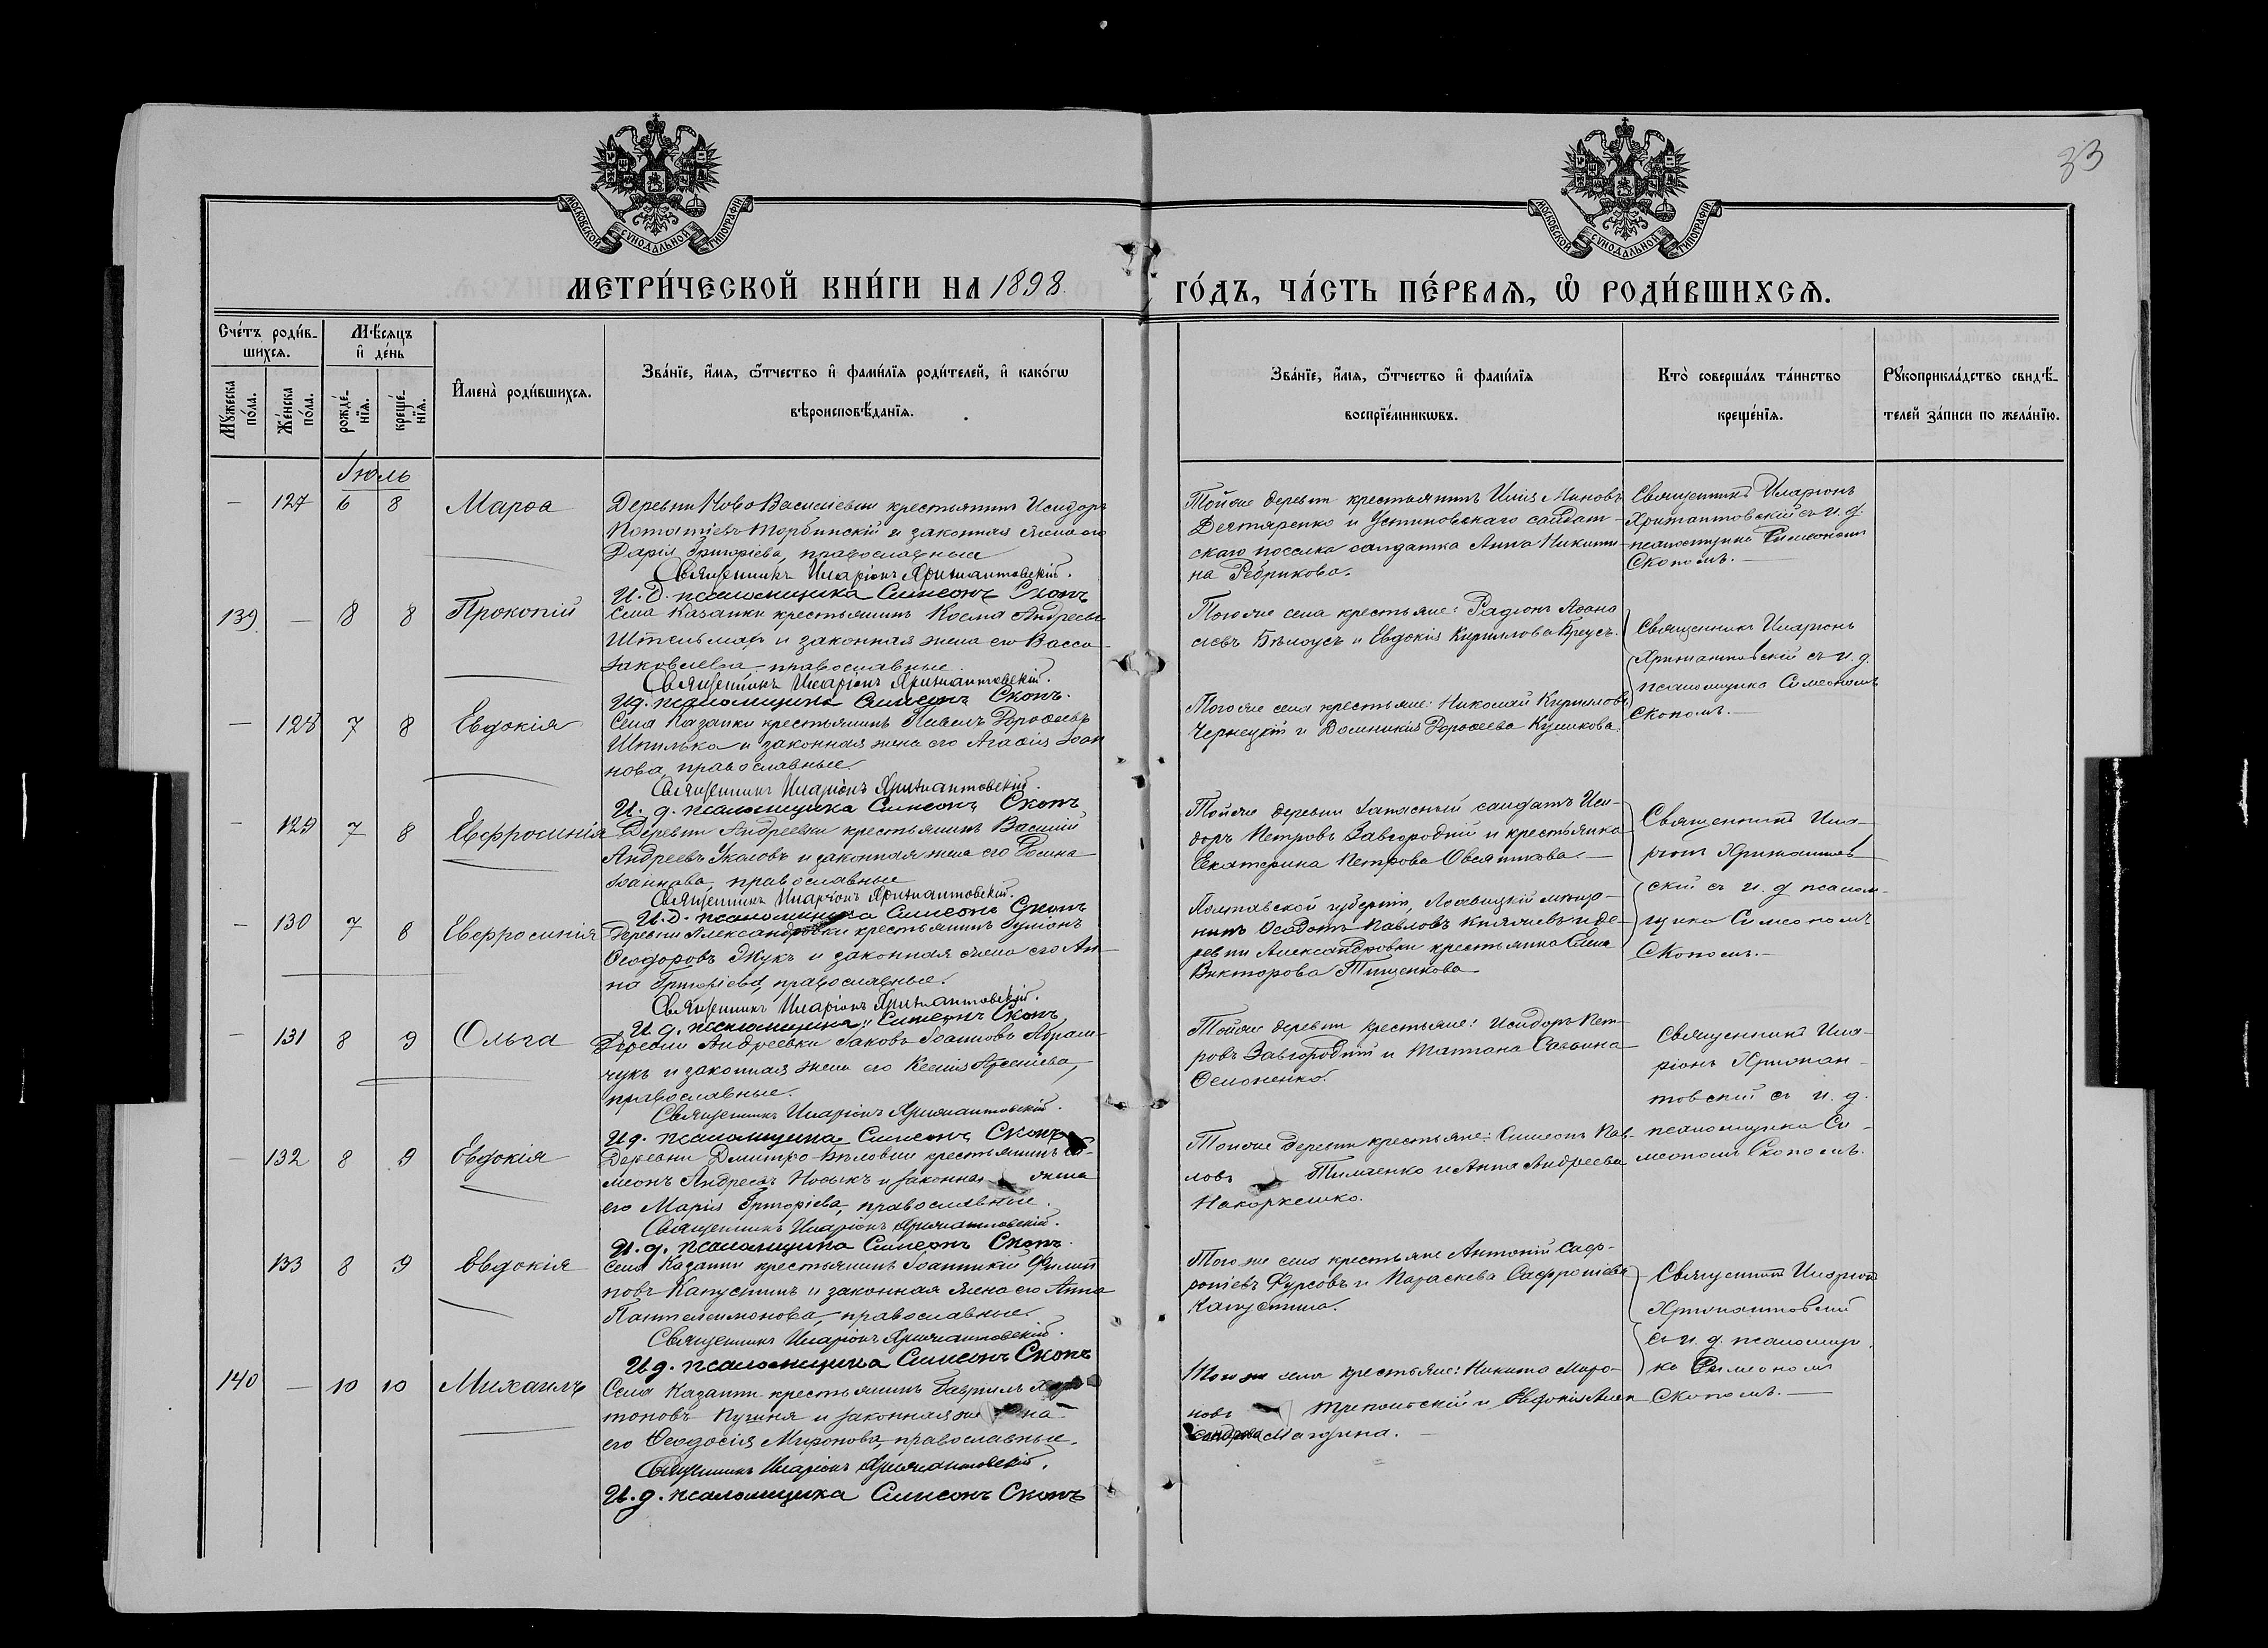 33
МОСКОВСКОЙ СѴНОДАЛЬНОЙ ТИПОГРАФІИ
МОСКОВСКОЙ СѴНОДАЛЬНОЙ ТИПОГРАФІИ
МЕТРИ́ЧЕСКОЙ КНИ́ГИ НА 1898 ГО́ДЪ, ЧА́СТЬ ПЕ́РВАѦ, Ѿ РОДИ́ВШИХСѦ.
Сче́тъ роди́в-
шихсѧ.
Мꙋ́жеска
по́ла.
Же́нска
по́ла.
Мѣ́сяцъ
и̂ де́нь
рожде́-
нїѧ.
креще́-
нїѧ.
И̂мена̀ роди́вшихсѧ.
Зва́нїе, и́мѧ, ѻ́тчество и̂ фами́лїѧ роди́телей, и̂ како́гѡ
вѣроисповѣ́данїѧ.
Зва́нїе, и́мѧ, ѻ́тчество и̂ фами́лїѧ
воспрїе́мникѡвъ.
Кто̀ соверша́лъ та́инство
креще́нїѧ.
Рꙋкоприкла́дство свидѣ́-
телей за́писи по жела́нїю.
Іюль
— 127 6 8 Марѳа
Деревни Ново Васильевки крестьянинъ Исидоръ
Потапіевъ Торбинскій и законная жена его
Дарія Григоріева, православные
Священникъ Иларіонъ Хрисанѳовскій.
И. д. псаломщика Симеонъ Скопъ
Тойже деревни крестьянинъ Илія Миновъ
Дегтяренко и Устиновскаго солдат-
скаго поселка солдатка Анна Никити-
на Ребрикова.
Священникъ Иларіонъ
Хрисанѳовскій съ и. д.
псаломщика Симеономъ
Скопомъ.—
139 — 8 8 Прокопій
Села Казанки крестьянинъ Косма Андреевъ
Штельмах и законная жена его Васса
Іаковлева православные
Священникъ Иларіонъ Хрисанѳовскій.
И д. псаломщика Симеонъ Скопъ.
Тогоже села крестьяне: Радіонъ Аѳана
сіевъ Бѣлоусъ и Евдокія Кириллова Бреусъ.
Священникъ Иларіонъ
Хрисанѳовскій съ и. д.
псаломщика Симеономъ
Скопомъ.—
— 128 7 8 Евдокія
Села Казанки крестьянинъ Павелъ Дороѳеевъ
Шпилько и законная жена его Агаѳія Іоан
нова, православные
Священникъ Иларіонъ Хрисанѳовскій.
И. д. псаломщика Симеонъ Скопъ
Тогоже села крестьяне: Николай Кирилловъ
Чернецкій и Домникія Дороѳеева Куликова.
— 129 7 8 Евфросинія
Деревни Андреевки крестьянинъ Василій
Андреевъ и законная жена его
Іоаннова, православные
Священникъ Иларіонъ Хрисанѳовскій.
И. д. псаломщика Симеонъ Скопъ
Тойже деревни запасный солдатъ Иси-
доръ Петровъ Завгородній и крестьянка
Екатерина Петрова Овсянкова.—
Священникъ Ила-
ріонъ Хрисанѳов
скій съ и. д псалом-
щика Симеономъ
Скопомъ.—
— 130 7 8 Евфросинія
Деревни Александровки крестьянинъ
Ѳеодоровъ Жукъ и законная жена его Ан-
на Григоріева, православные.
Священникъ Иларіонъ Хрисанѳовскій.
И д. псаломщика Симеонъ Скопъ
Полтавской губерніи, мѣща-
нинъ Ѳеодотъ Павловъ и де-
ревни Александровки крестьянка Елена
Викторова Тищенкова
— 131 8 9 Ольга
Деревни Андреевки Іаковъ Іоанновъ Абрам-
чукъ и законная жена его Ксенія Арсеніева,
православные.
Священникъ Иларіонъ Хрисанѳовскій.
И д. псаломщика Симеонъ Скопъ
Тойже деревни крестьяне: Исидоръ Пет-
ровъ Завгородній и Татіана Саввина
Священникъ Ила-
ріонъ Хрисан-
ѳовскій съ и. д.
псаломщика Си-
меономъ Скопомъ.
— 132 8 9 Евдокія
Деревни Дмитро-Бѣловки крестьянинъ Си-
меонъ Андреевъ Носыкъ и законная жена
его Марія Григоріева, православные.
Священникъ Иларіонъ Хрисанѳовскій.
И. д. псаломщика Симеонъ Скопъ.
Тойже деревни крестьяне: Симеонъ Пав-
ловъ Тимченко и Анна Андреева
133 8 9 Евдокія
Села Казанки крестьянинъ Іоанникій Филип
повъ Капустинъ и законная жена его Анна
Пантелеимонова, православные.
Священникъ Иларіонъ Хрисанѳовскій.
И д. псаломщика Симеонъ Скопъ
Того же села крестьяне Антоній Саф-
роніевъ Фурсовъ и Параскева Сафроніева
Капустина.
Священникъ Иларіонъ
Хрисанѳовскій
съ и. д. псаломщи
ка Симеономъ
Скопомъ.—
140 — 10 10 Михаилъ
Села Казанки крестьянинъ Гавріилъ Хари
тоновъ и законная же на
его Ѳеодосія Миронова, православные.
Священникъ Иларіонъ Хрисанѳовскій.
И. д. псаломщика Симеонъ Скопъ
Того же села крестьяне: Никита Миро-
новъ и Евфимія Алек
сандрова.—